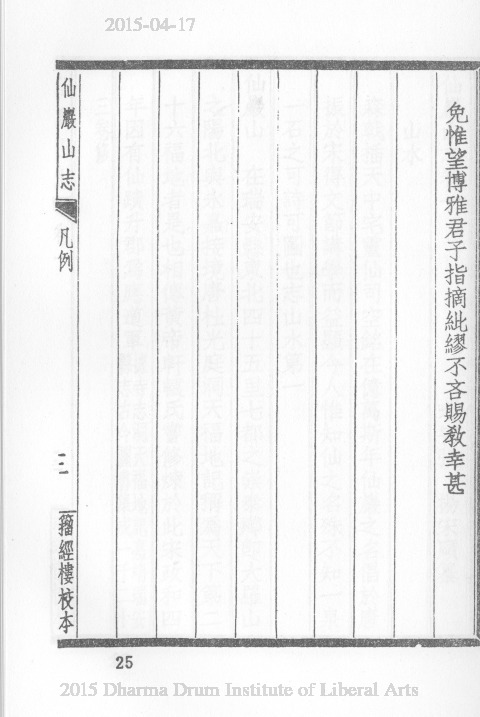 2015-04-17
免惟望博雅君子指摘紕繆不吝賜教幸甚
仙巖山志
凡例
三
籀經樓校本
25
2015 Dharma Drum Institute of Liberal Arts